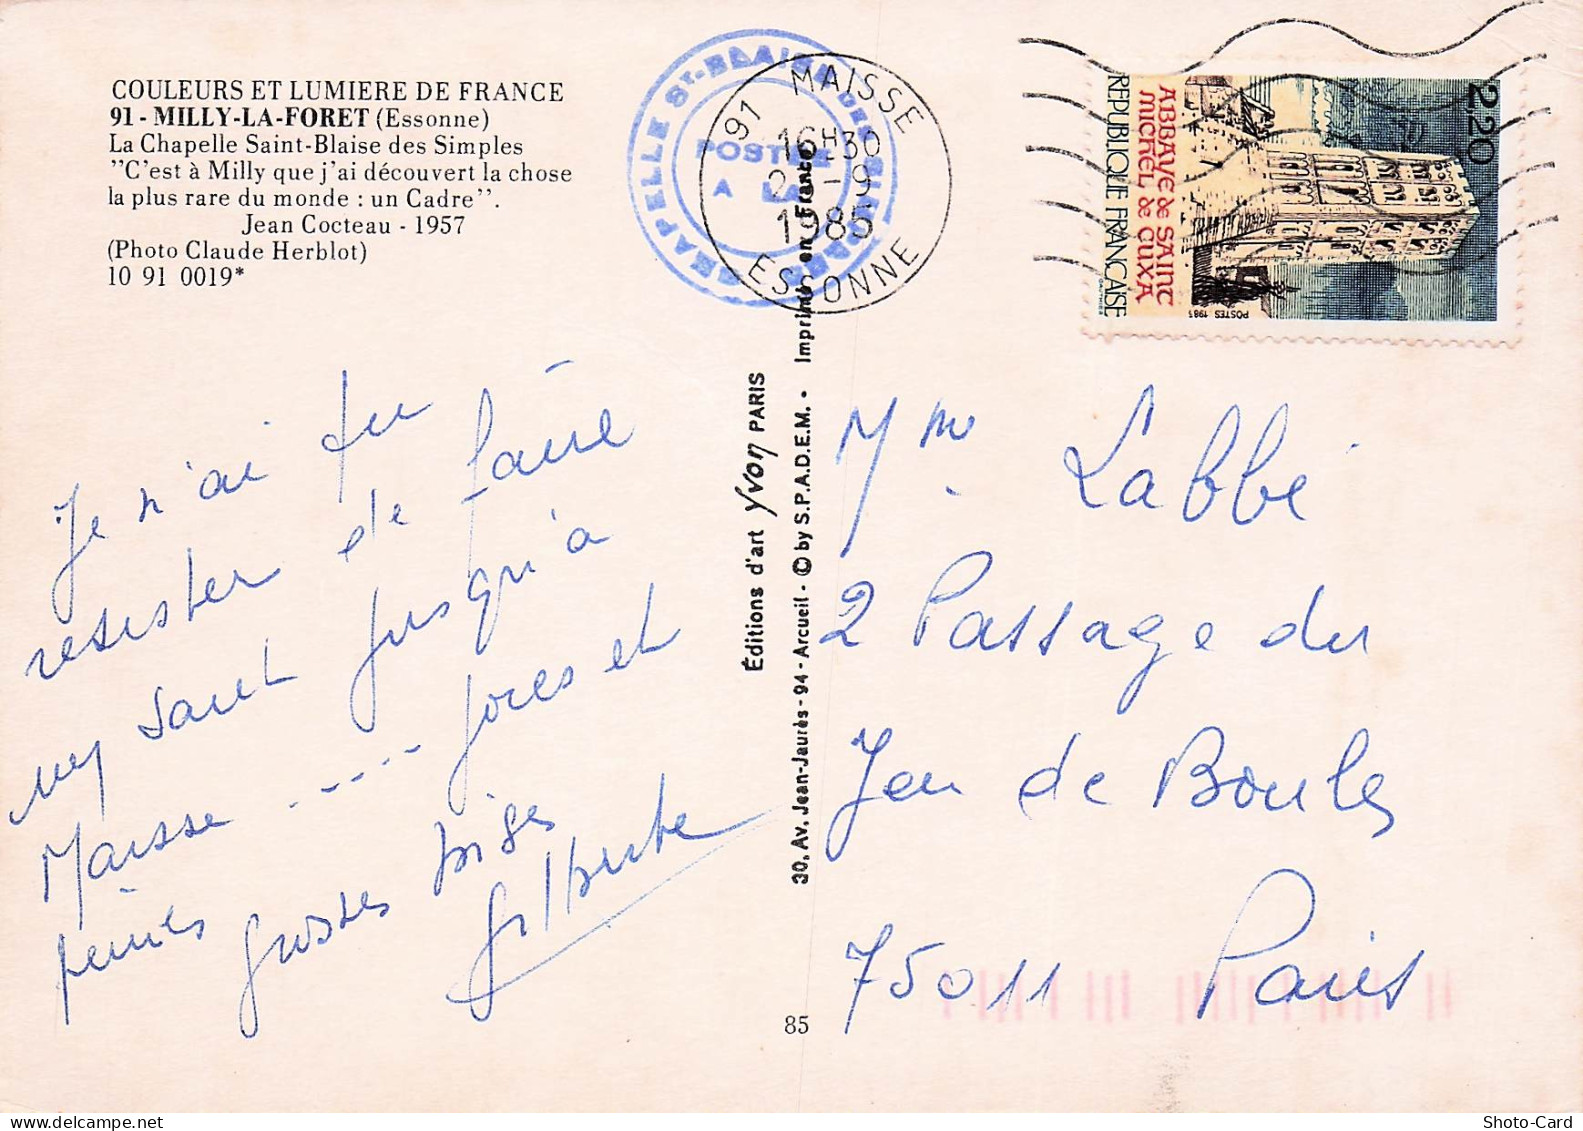 COULEURS ET LUMIERE DE FRANCE
91 - MILLY-LA-FORET (Essonne)
La Chapelle Saint-Blaise des Simples
"C'est à Milly que j'ai découvert la chose
la plus rare du monde : un Cadre".
Jean Cocteau - 1957
(Photo Claude Herblot)
10 91 0019*
CHAPELLE St-BLAISE DES SIMPLES
POSTÉE
A LA
91 MAISSE
16H30
-9
1985
ESSONNE
2,20
ABBAYE de SAINT
MICHEL de CUXA
REPUBLIQUE FRANÇAISE
POSTES 1985
GAUTHIER
Je n'ai pu
resister de faire
un saut jusqu'à
Maisse .... joies et
peines
grosses bises
Gilberte
Éditions d'art Yvon PARIS
30, Av. Jean-Jaurès - 94 - Arcueil - © by S.P.A.D.E.M. • Imprimé en France
85
Mme Labbé
2 Passage du
Jeu de Boules
75011 Paris
Shoto-Card